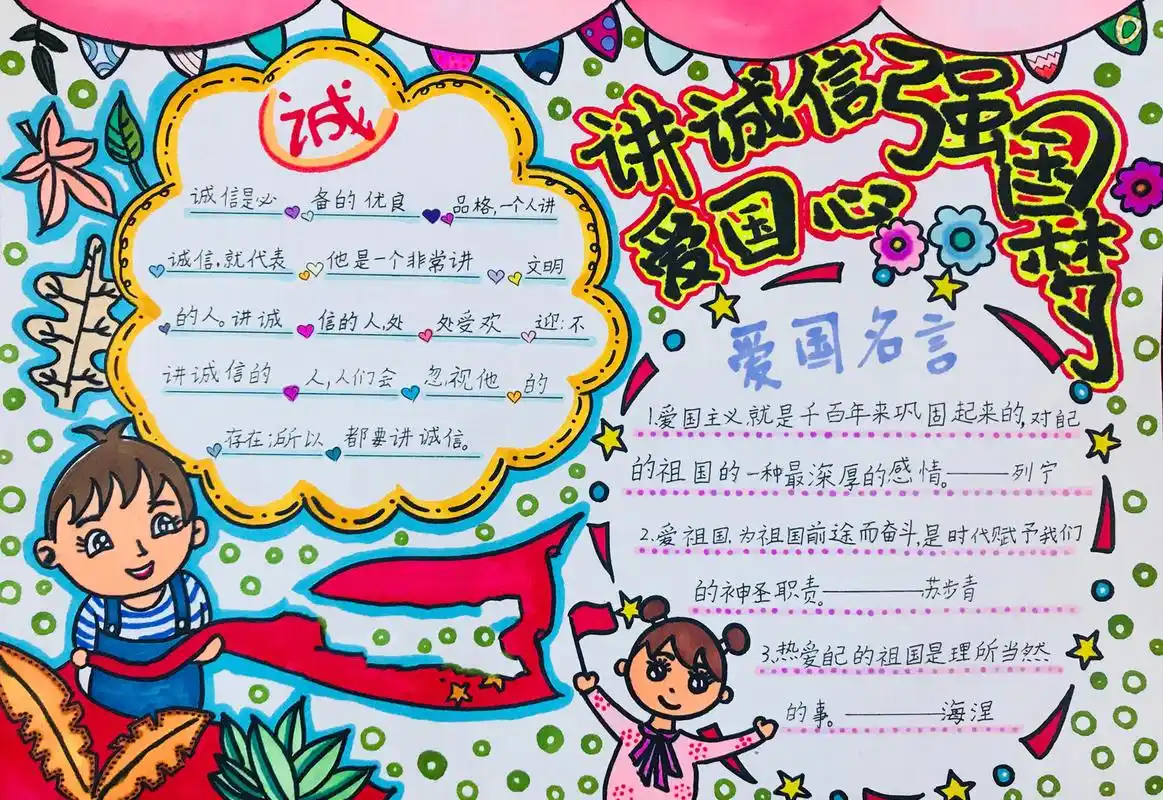 讲诚信强国梦
爱国心
诚
诚信是必备的优良品格,一个人讲
诚信,就代表他是一个非常讲文明
的人。讲诚信的人,处处受欢迎;不
讲诚信的人,人们会忽视他的
存在;所以都要讲诚信。
爱国名言
1.爱国主义就是千百年来巩固起来的,对自己
的祖国的一种最深厚的感情。———列宁
2.爱祖国,为祖国前途而奋斗,是时代赋予我们
的神圣职责。————苏步青
3.热爱自己的祖国是理所当然
的事。————海涅